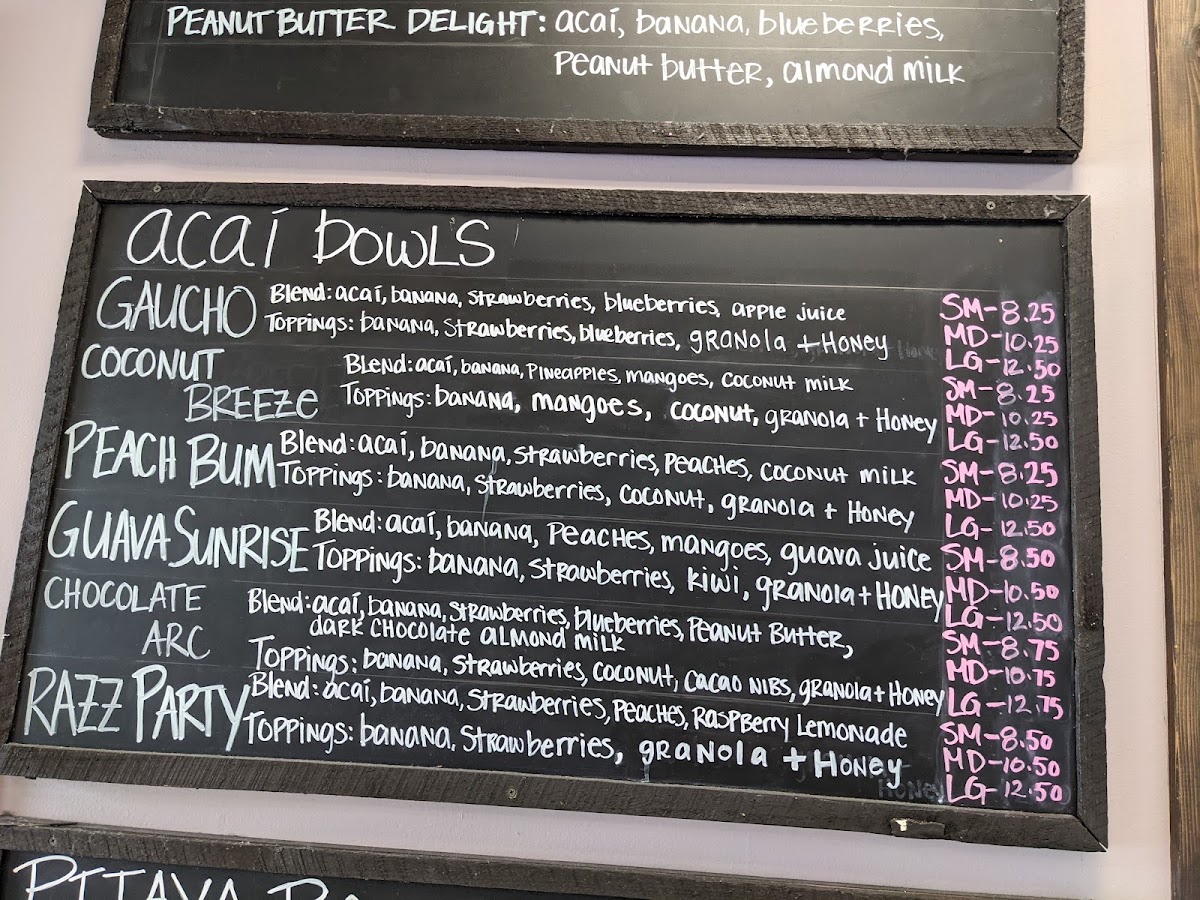 PEANUT BUTTER DELIGHT: acaí, banana, blueberries,
Peanut butter, almond milk
acaí bowls
GAUCHO Blend: acaí, banana, strawberries, blueberries, apple juice SM-8.25
Toppings: banana, strawberries, blueberries, granola + Honey MD-10.25
LG-12.50
COCONUT Blend: acaí, banana, pineapples, mangoes, coconut milk SM-8.25
BREEZE Toppings: banana, mangoes, coconut, granola + Honey MD-10.25
LG-12.50
PEACH BUM Blend: acaí, banana, strawberries, Peaches, coconut milk SM-8.25
Toppings: banana, strawberries, coconut, granola + Honey MD-10.25
LG-12.50
GUAVA SUNRISE Blend: acaí, banana, Peaches, mangoes, guava juice SM-8.50
Toppings: banana, strawberries, kiwi, granola + Honey MD-10.50
LG-12.50
CHOCOLATE Blend: acaí, banana, strawberries, blueberries, Peanut Butter, SM-8.75
dark chocolate almond milk
ARC Toppings: banana, strawberries, coconut, cacao nibs, granola + Honey MD-10.75
LG-12.75
RAZZ PARTY Blend: acaí, banana, strawberries, Peaches, Raspberry Lemonade SM-8.50
Toppings: banana, strawberries, granola + Honey MD-10.50
LG-12.50
PITAYA